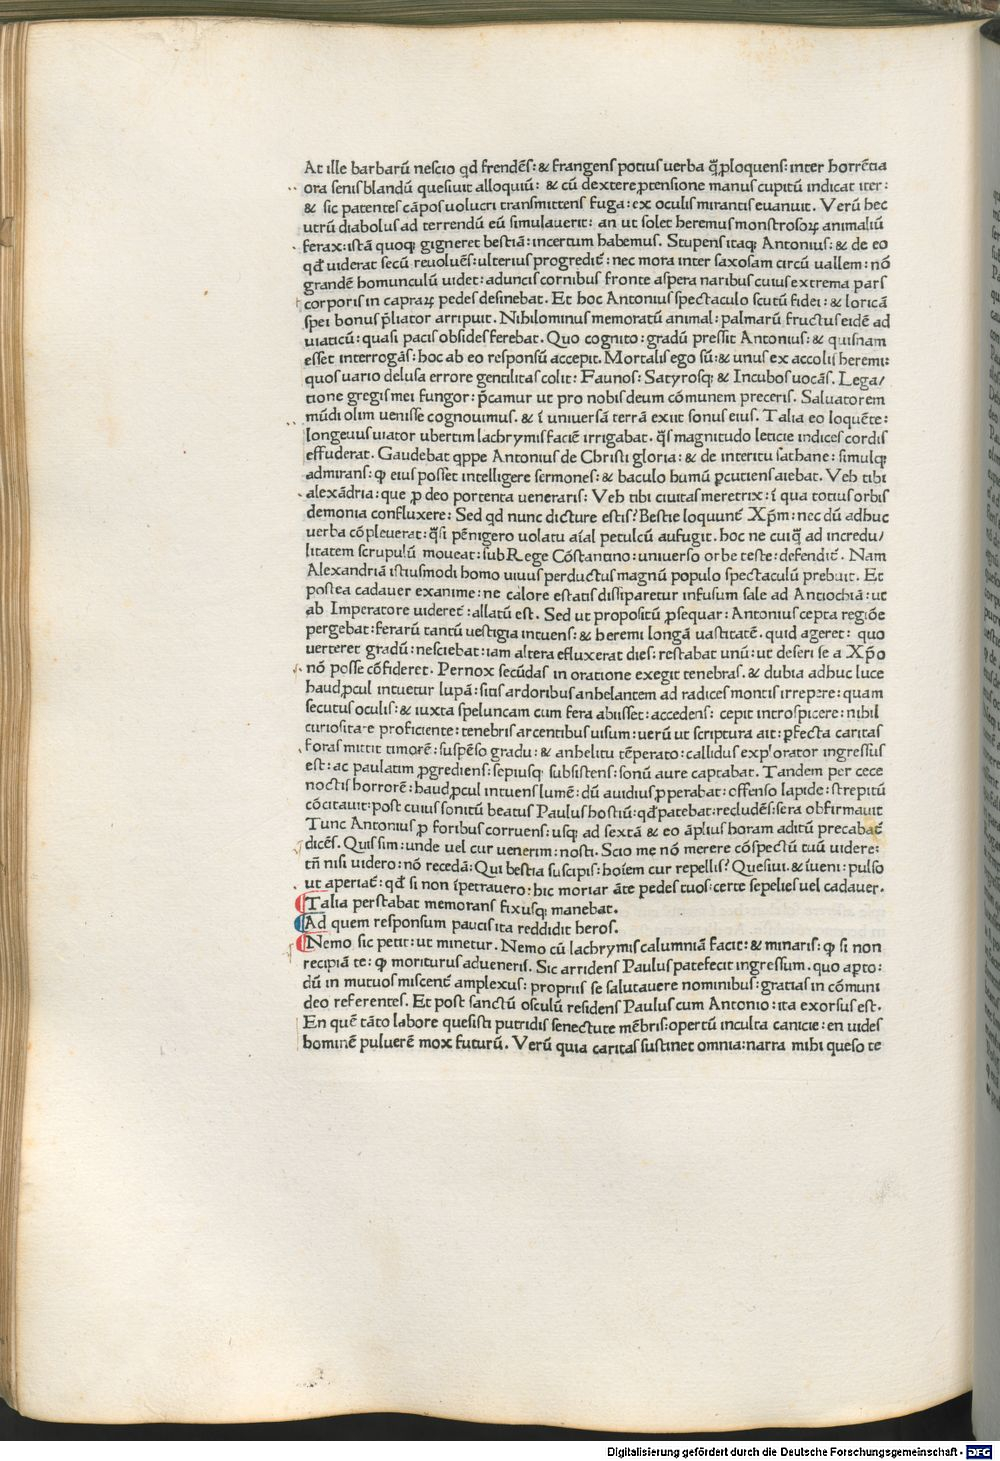 At ille barbarū nescio qd frendēs: & frangens potius uerba q̄ ꝓloquens: inter horrētia
ora senis blandū quesiuit alloquiū: & cū dextere ꝓtensione manus cupitū indicat iter:
& sic patentes cāpos uolucri transmittens fuga: ex oculis mirantis euanuit. Verū hec
utrū diabolus ad terrendū eū simulauerit: an ut solet heremus monstrosoꝝ animaliū
ferax: istā quoqꝫ gigneret bestiā: incertum habemus. Stupens itaqꝫ Antonius: & de eo
qđ uiderat secū reuoluēs: ulterius progredit̄: nec mora inter saxosam circū uallem: nō
grandē homunculū uidet: aduncis cornibus fronte aspera naribus cuius extrema pars
corporis in capraꝝ pedes desinebat. Et hoc Antonius spectaculo scutū fidei: & loricā
spei bonus p̄liator arripuit. Nihilominus memoratū animal: palmarū fructus eidē ad
uiaticū: quasi pacis obsides ferebat. Quo cognito: gradū pressit Antonius: & quisnam
esset interrogās: hoc ab eo responsū accepit. Mortalis ego sū: & unus ex accolis heremi:
quos uario delusa errore gentilitas colit: Faunos: Satyrosqꝫ & Incubos uocās. Lega/
tione gregis mei fungor: p̄camur ut pro nobis deum cōmunem preceris. Saluatorem
mūdi olim uenisse cognouimus. & ī uniuersā terrā exiit sonus eius. Talia eo loquēte:
longeuus uiator ubertim lachrymis faciē irrigabat. q̄s magnitudo leticie indices cordis
effuderat. Gaudebat qppe Antonius de Christi gloria: & de interitu sathane: simulqꝫ
admirans: ꝙ eius posset intelligere sermones: & baculo humū ꝑcutiens aiebat. Veh tibi
alexādria: que ꝓ deo portenta ueneraris: Veh tibi ciuitas meretrix: ī qua totius orbis
demonia confluxere: Sed qd nunc dicture estis? Bestie loquunt̄ Xp̄m: nec dū adhuc
uerba cōpleuerat: q̄si pēnigero uolatu aīal petulcū aufugit. hoc ne cuiq̄ ad incredu/
litatem scrupulū moueat: sub Rege Cōstantino: uniuerso orbe teste: defendit̄. Nam
Alexandriā istiusmodi homo uiuus perductus magnū populo spectaculū prebuit. Et
postea cadauer exanime: ne calore estatis dissiparetur infusum sale ad Antiochiā: ut
ab Imperatore uideret̄: allatū est. Sed ut propositū ꝓsequar: Antonius cepta regiōe
pergebat: ferarū tantū uestigia intuens: & heremi longā uastitatē. quid ageret: quo
uerteret gradū: nesciebat: iam altera effluxerat dies: restabat unū: ut deseri se a Xp̄o
nō posse cōfideret. Pernox secūdas in oratione exegit tenebras. & dubia adhuc luce
haud ꝓcul intuetur lupā: sitis ardoribus anhelantem ad radices montis irrepere: quam
secutus oculis: & iuxta speluncam cum fera abiisset: accedens: cepit introspicere: nihil
curiositate proficiente: tenebris arcentibus uisum: uerū ut scriptura ait: ꝑfecta caritas
foras mittit timorē: suspēso gradu: & anhelitu tēperato: callidus explorator ingressus
est: ac paulatim ꝓgrediens: sepiusqꝫ subsistens: sonū aure captabat. Tandem per cece
noctis horrorē: haud ꝓcul intuens lumē: dū auidius ꝓperabat: offenso lapide: strepitū
cōcitauit: post cuius sonitū beatus Paulus hostiū: qđ patebat: recludēs: sera obfirmauit
Tunc Antonius ꝓ foribus corruens: usqꝫ ad sextā & eo āplius horam aditū precabat̄
dicēs. Quis sim: unde uel cur uenerim: nosti. Scio me nō merere cōspectū tuū uidere:
tn̄ nisi uidero: nō recedā: Qui bestia suscipis: hoīem cur repellis? Quesiui. & īueni: pulso
ut aperiat̄: qđ si non īpetrauero: hic moriar āte pedes tuos: certe sepelies uel cadauer.
Talia perstabat memorans fixusqꝫ manebat.
Ad quem responsum paucis ita reddidit heros.
Nemo sic petit: ut minetur. Nemo cū lachrymis calumniā facit: & minaris: ꝙ si non
recipiā te: ꝙ moriturus adueneris. Sic arridens Paulus patefecit ingressum. quo apto:
dū in mutuos miscent̄ amplexus: propriis se salutauere nominibus: gratias in cōmuni
deo referentes. Et post sanctū osculū residens Paulus cum Antonio: ita exorsus est.
En quē tāto labore quesisti putridis senectute mēbris: opertū inculta canicie: en uides
hominē puluerē mox futurū. Verū quia caritas sustinet omnia: narra mihi queso te
Digitalisierung gefördert durch die Deutsche Forschungsgemeinschaft - DFG